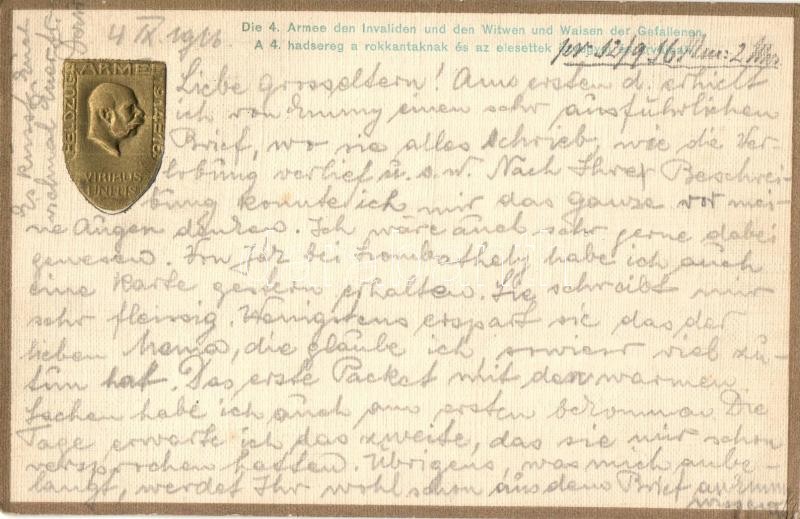 Die 4. Armee den Invaliden und den Witwen und Waisen der Gefallenen
A 4. hadsereg a rokkantaknak és az elesettek
4 IX 1916
FELDZUGS ARMEE 1914-16
VIRIBUS
UNITIS
Liebe grosseltern! Am ersten d. erhielt
ich von Emmy einen sehr ausführlichen
Brief, wo sie alles schrieb, wie die Ver-
lobung verlief u. s. w. Nach Ihrer Beschrei-
bung konnte ich mir das ganze vor mei-
ne Augen denken. Ich wäre auch sehr gerne dabei
gewesen. Von bei Szombathely habe ich auch
eine Karte gestern erhalten. Sie schreibt mir
sehr fleissig. Wenigstens erspart sie das der
lieben Mama, die glaube ich sowieso viel zu-
tun hat. Das erste Packet mit den warmen
Sachen habe ich auch am ersten bekommen Die
Tage erwarte ich das zweite, das sie mir schon
versprochen hatten. Übrigens, was mich anbe-
langt, werdet Ihr wohl schon aus dem Brief an Emmy
Es küsst Euch